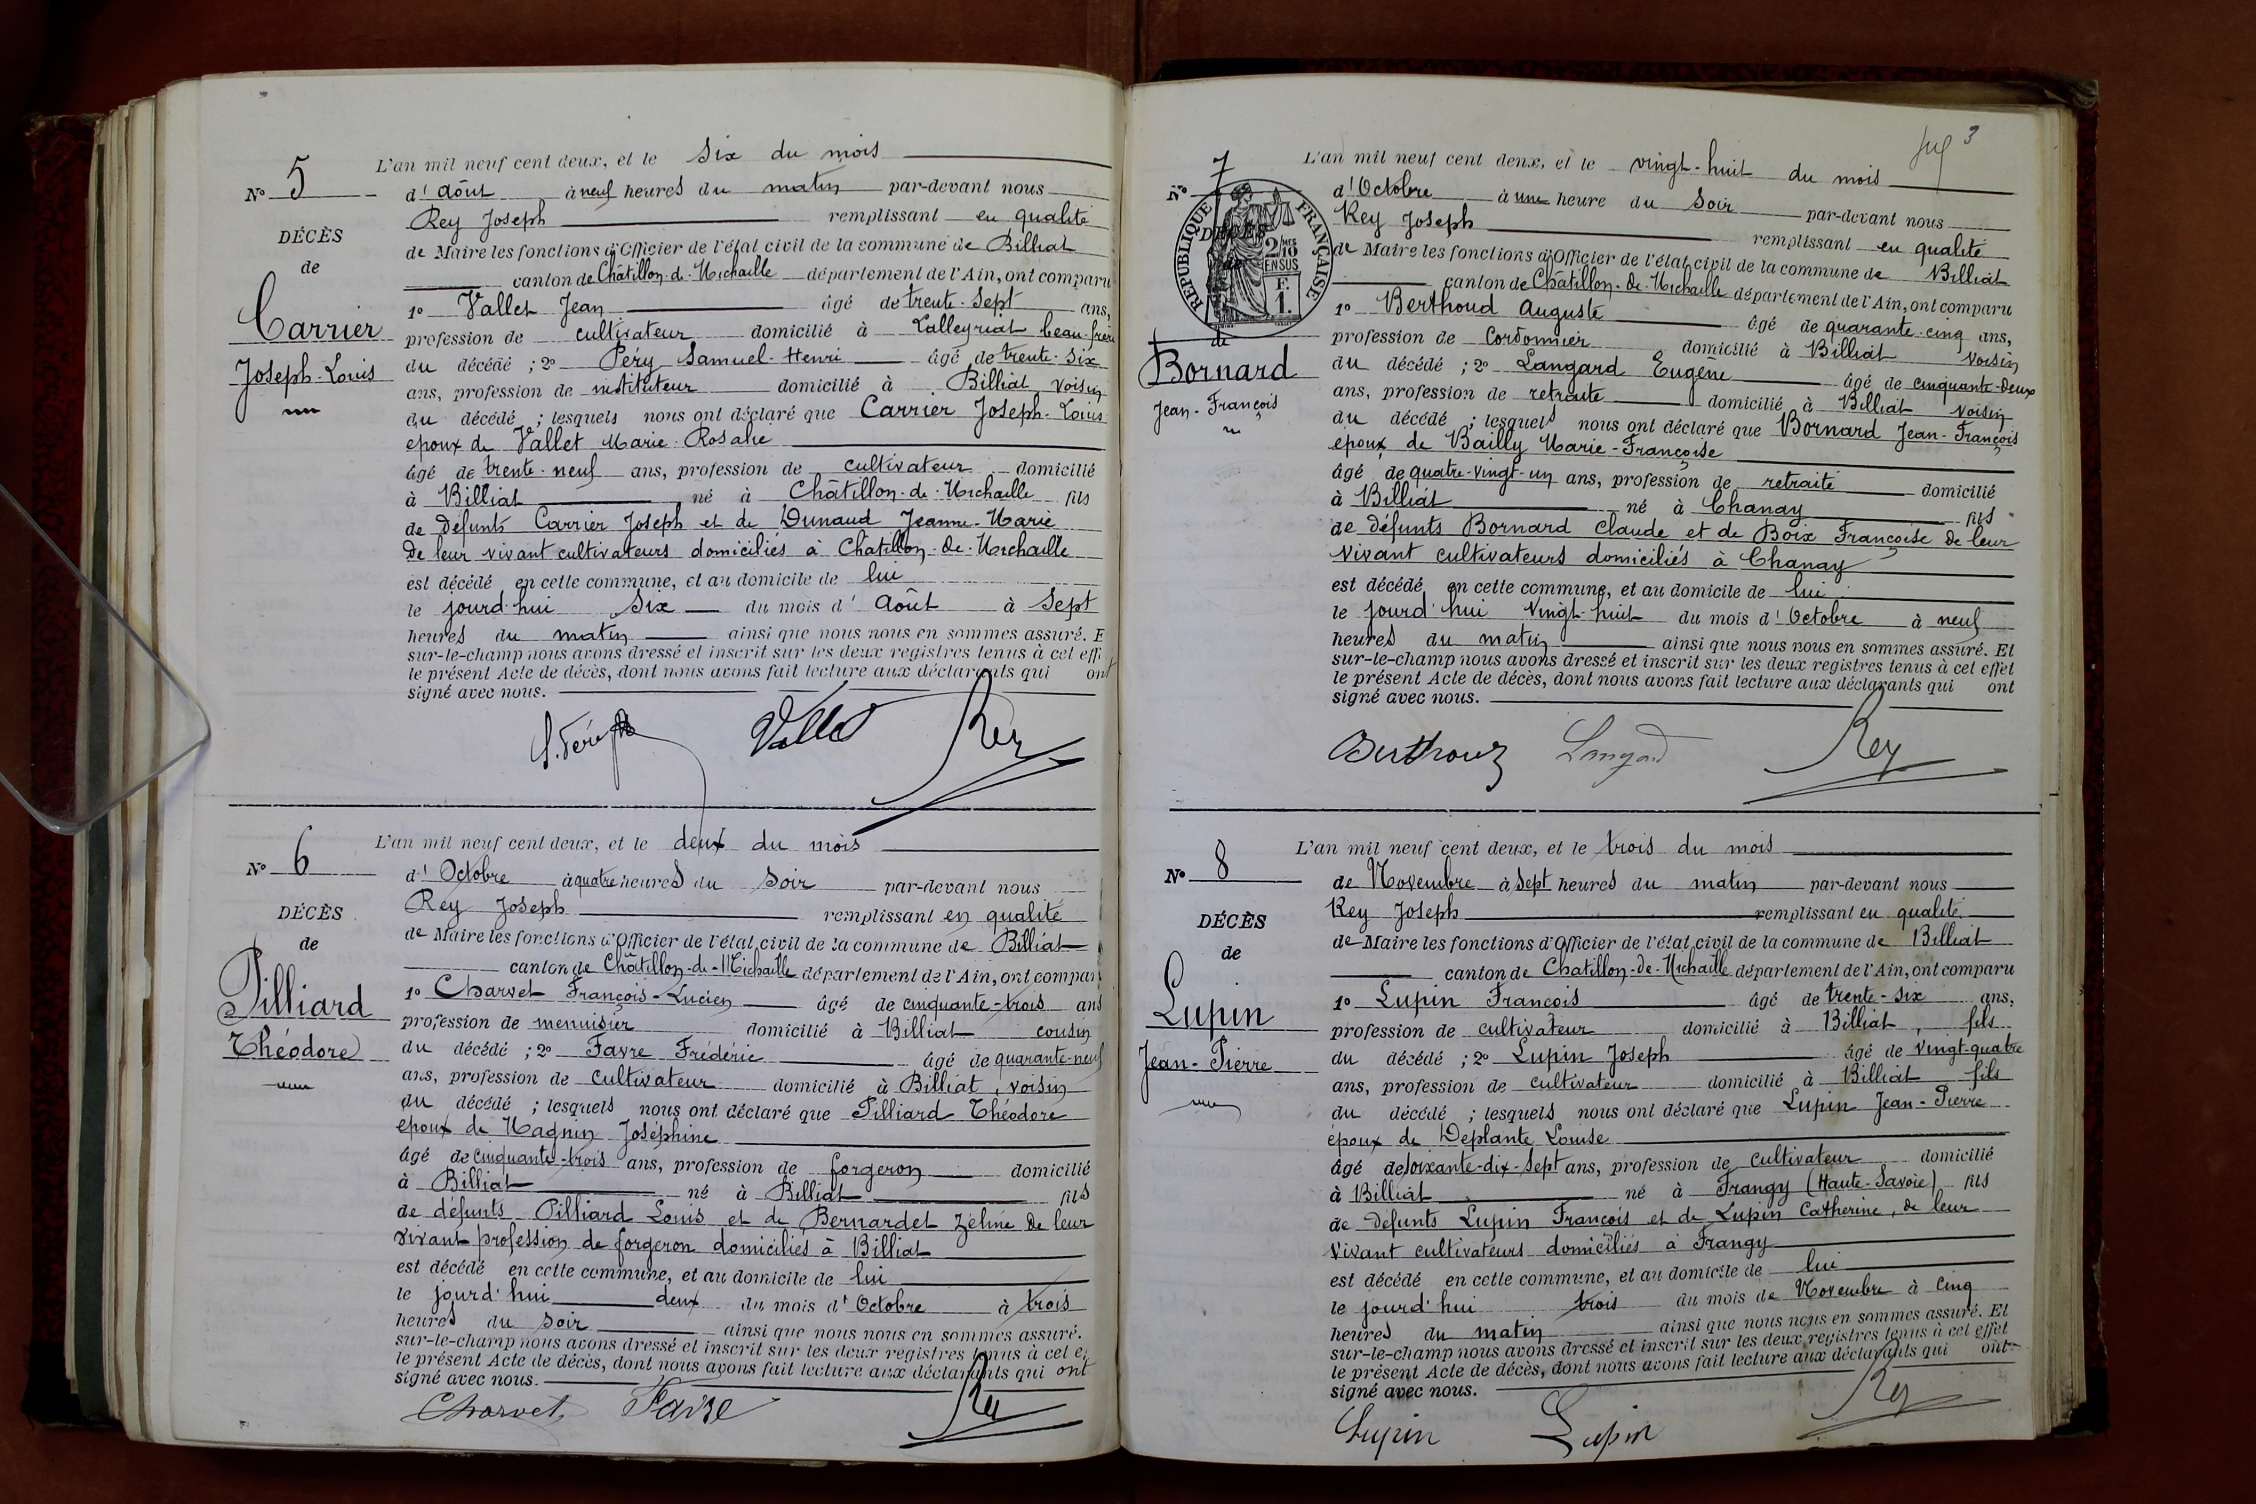 L'an mil neuf cent deux, et le six du mois
No 5 d'Août à neuf heures du matin par-devant nous
Rey Joseph remplissant en qualité
DÉCÈS
de
Carrier
Joseph-Louis
de Maire les fonctions d'Officier de l'état civil de la commune de Billiat
canton de Châtillon-de-Michaille département de l'Ain, ont comparu
1o Vallet Jean âgé de trente-sept ans,
profession de cultivateur domicilié à Lalleyriat beau-frère
du décédé ; 2o Péry Samuel-Henri âgé de trente-six
ans, profession de instituteur domicilié à Billiat voisin
du décédé ; lesquels nous ont déclaré que Carrier Joseph-Louis
époux de Vallet Marie-Rosalie
âgé de trente-neuf ans, profession de cultivateur domicilié
à Billiat né à Châtillon-de-Michaille fils
de défunts Carrier Joseph et de Dunaud Jeanne-Marie
de leur vivant cultivateurs domiciliés à Chatillon-de-Michaille
est décédé en cette commune, et au domicile de lui
le jourd'hui six du mois d'Août à sept
heures du matin ainsi que nous nous en sommes assuré. E
sur-le-champ nous avons dressé et inscrit sur les deux registres tenus à cet eff
le présent Acte de décès, dont nous avons fait lecture aux déclarants qui ont
signé avec nous.
Vallet Rey
L'an mil neuf cent deux, et le deux du mois
No 6 d'Octobre à quatre heures du soir par-devant nous
Rey Joseph remplissant en qualité
DÉCÈS
de
Pilliard
Théodore
de Maire les fonctions d'Officier de l'état civil de la commune de Billiat
canton de Châtillon-de-Michaille département de l'Ain, ont compar
1o Charvet François-Lucien âgé de cinquante-trois ans
profession de menuisier domicilié à Billiat cousin
du décédé ; 2o Favre Frédéric âgé de quarante-neuf
ans, profession de cultivateur domicilié à Billiat, voisin
du décédé ; lesquels nous ont déclaré que Pilliard Théodore
époux de Magnin Joséphine
âgé de cinquante-trois ans, profession de forgeron domicilié
à Billiat né à Billiat fils
de défunts Pilliard Louis et de Bernardet Zéline de leur
vivant profession de forgeron domiciliés à Billiat
est décédé en cette commune, et au domicile de lui
le jourd'hui deux du mois d'Octobre à trois
heures du soir ainsi que nous nous en sommes assuré.
sur-le-champ nous avons dressé et inscrit sur les deux registres tenus à cet e
le présent Acte de décès, dont nous avons fait lecture aux déclarants qui ont
signé avec nous.
Charvet Favre Rey
3
L'an mil neuf cent deux, et le vingt-huit du mois
No 7 d'Octobre à une heure du soir par-devant nous
Rey Joseph remplissant en qualité
RÉPUBLIQUE FRANÇAISE
2/10 MES
EN SUS
F.
1.
DÉCÈS
de
Bornard
Jean-François
de Maire les fonctions d'Officier de l'état civil de la commune de Billiat
canton de Châtillon-de-Michaille département de l'Ain, ont comparu
1o Berthoud Auguste âgé de quarante-cinq ans,
profession de Cordonnier domicilié à Billiat voisin
du décédé ; 2o Langard Eugène âgé de cinquante-deux
ans, profession de retraité domicilié à Billiat voisin
du décédé ; lesquels nous ont déclaré que Bornard Jean-François
époux de Bailly Marie-Françoise
âgé de quatre-vingt-un ans, profession de retraité domicilié
à Billiat né à Chanay fils
de défunts Bornard Claude et de Boix Françoise de leur
vivant cultivateurs domiciliés à Chanay
est décédé en cette commune, et au domicile de lui
le jourd'hui vingt-huit du mois d'Octobre à neuf
heures du matin ainsi que nous nous en sommes assuré. Et
sur-le-champ nous avons dressé et inscrit sur les deux registres tenus à cet effet
le présent Acte de décès, dont nous avons fait lecture aux déclarants qui ont
signé avec nous.
Berthoud Langard Rey
L'an mil neuf cent deux, et le trois du mois
No 8 de Novembre à sept heures du matin par-devant nous
Rey Joseph remplissant en qualité
DÉCÈS
de
Lupin
Jean-Pierre
de Maire les fonctions d'Officier de l'état civil de la commune de Billiat
canton de Chatillon-de-Michaille département de l'Ain, ont comparu
1o Lupin François âgé de trente-six ans,
profession de cultivateur domicilié à Billiat, fils
du décédé ; 2o Lupin Joseph âgé de vingt-quatre
ans, profession de cultivateur domicilié à Billiat fils
du décédé ; lesquels nous ont déclaré que Lupin Jean-Pierre
époux de Deplante Louise
âgé de soixante-dix-sept ans, profession de cultivateur domicilié
à Billiat né à Frangy (Haute-Savoie) fils
de défunts Lupin François et de Lupin Catherine, de leur
vivant cultivateurs domiciliés à Frangy
est décédé en cette commune, et au domicile de lui
le jourd'hui trois du mois de Novembre à cinq
heures du matin ainsi que nous nous en sommes assuré. Et
sur-le-champ nous avons dressé et inscrit sur les deux registres tenus à cet effet
le présent Acte de décès, dont nous avons fait lecture aux déclarants qui ont
signé avec nous.
Lupin Lupin Rey